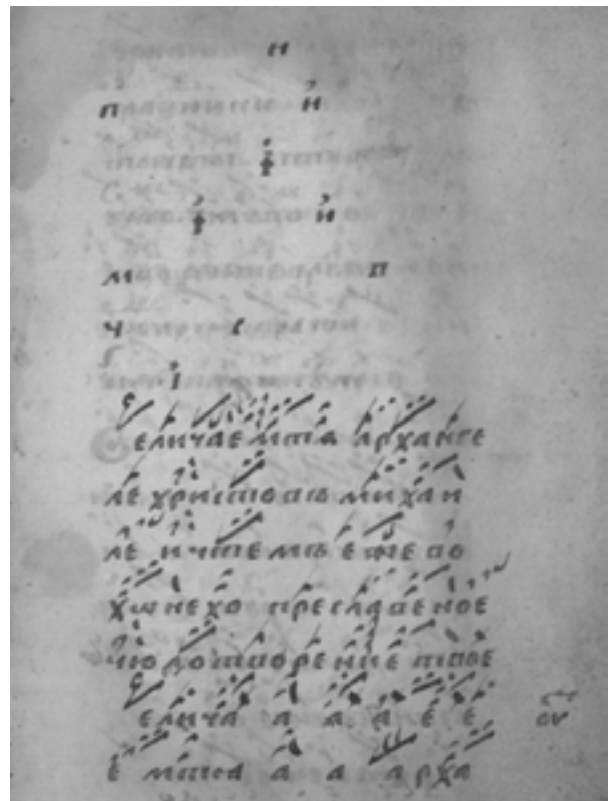 и
п й
й
м п
ч е
і
еличаемтѧ арханге
ле христовъ михаи
ле ичтемъ еже во
хѡнехо преславеное
чюдотворение твое
елича а а а е е
е мтѧ а а арха